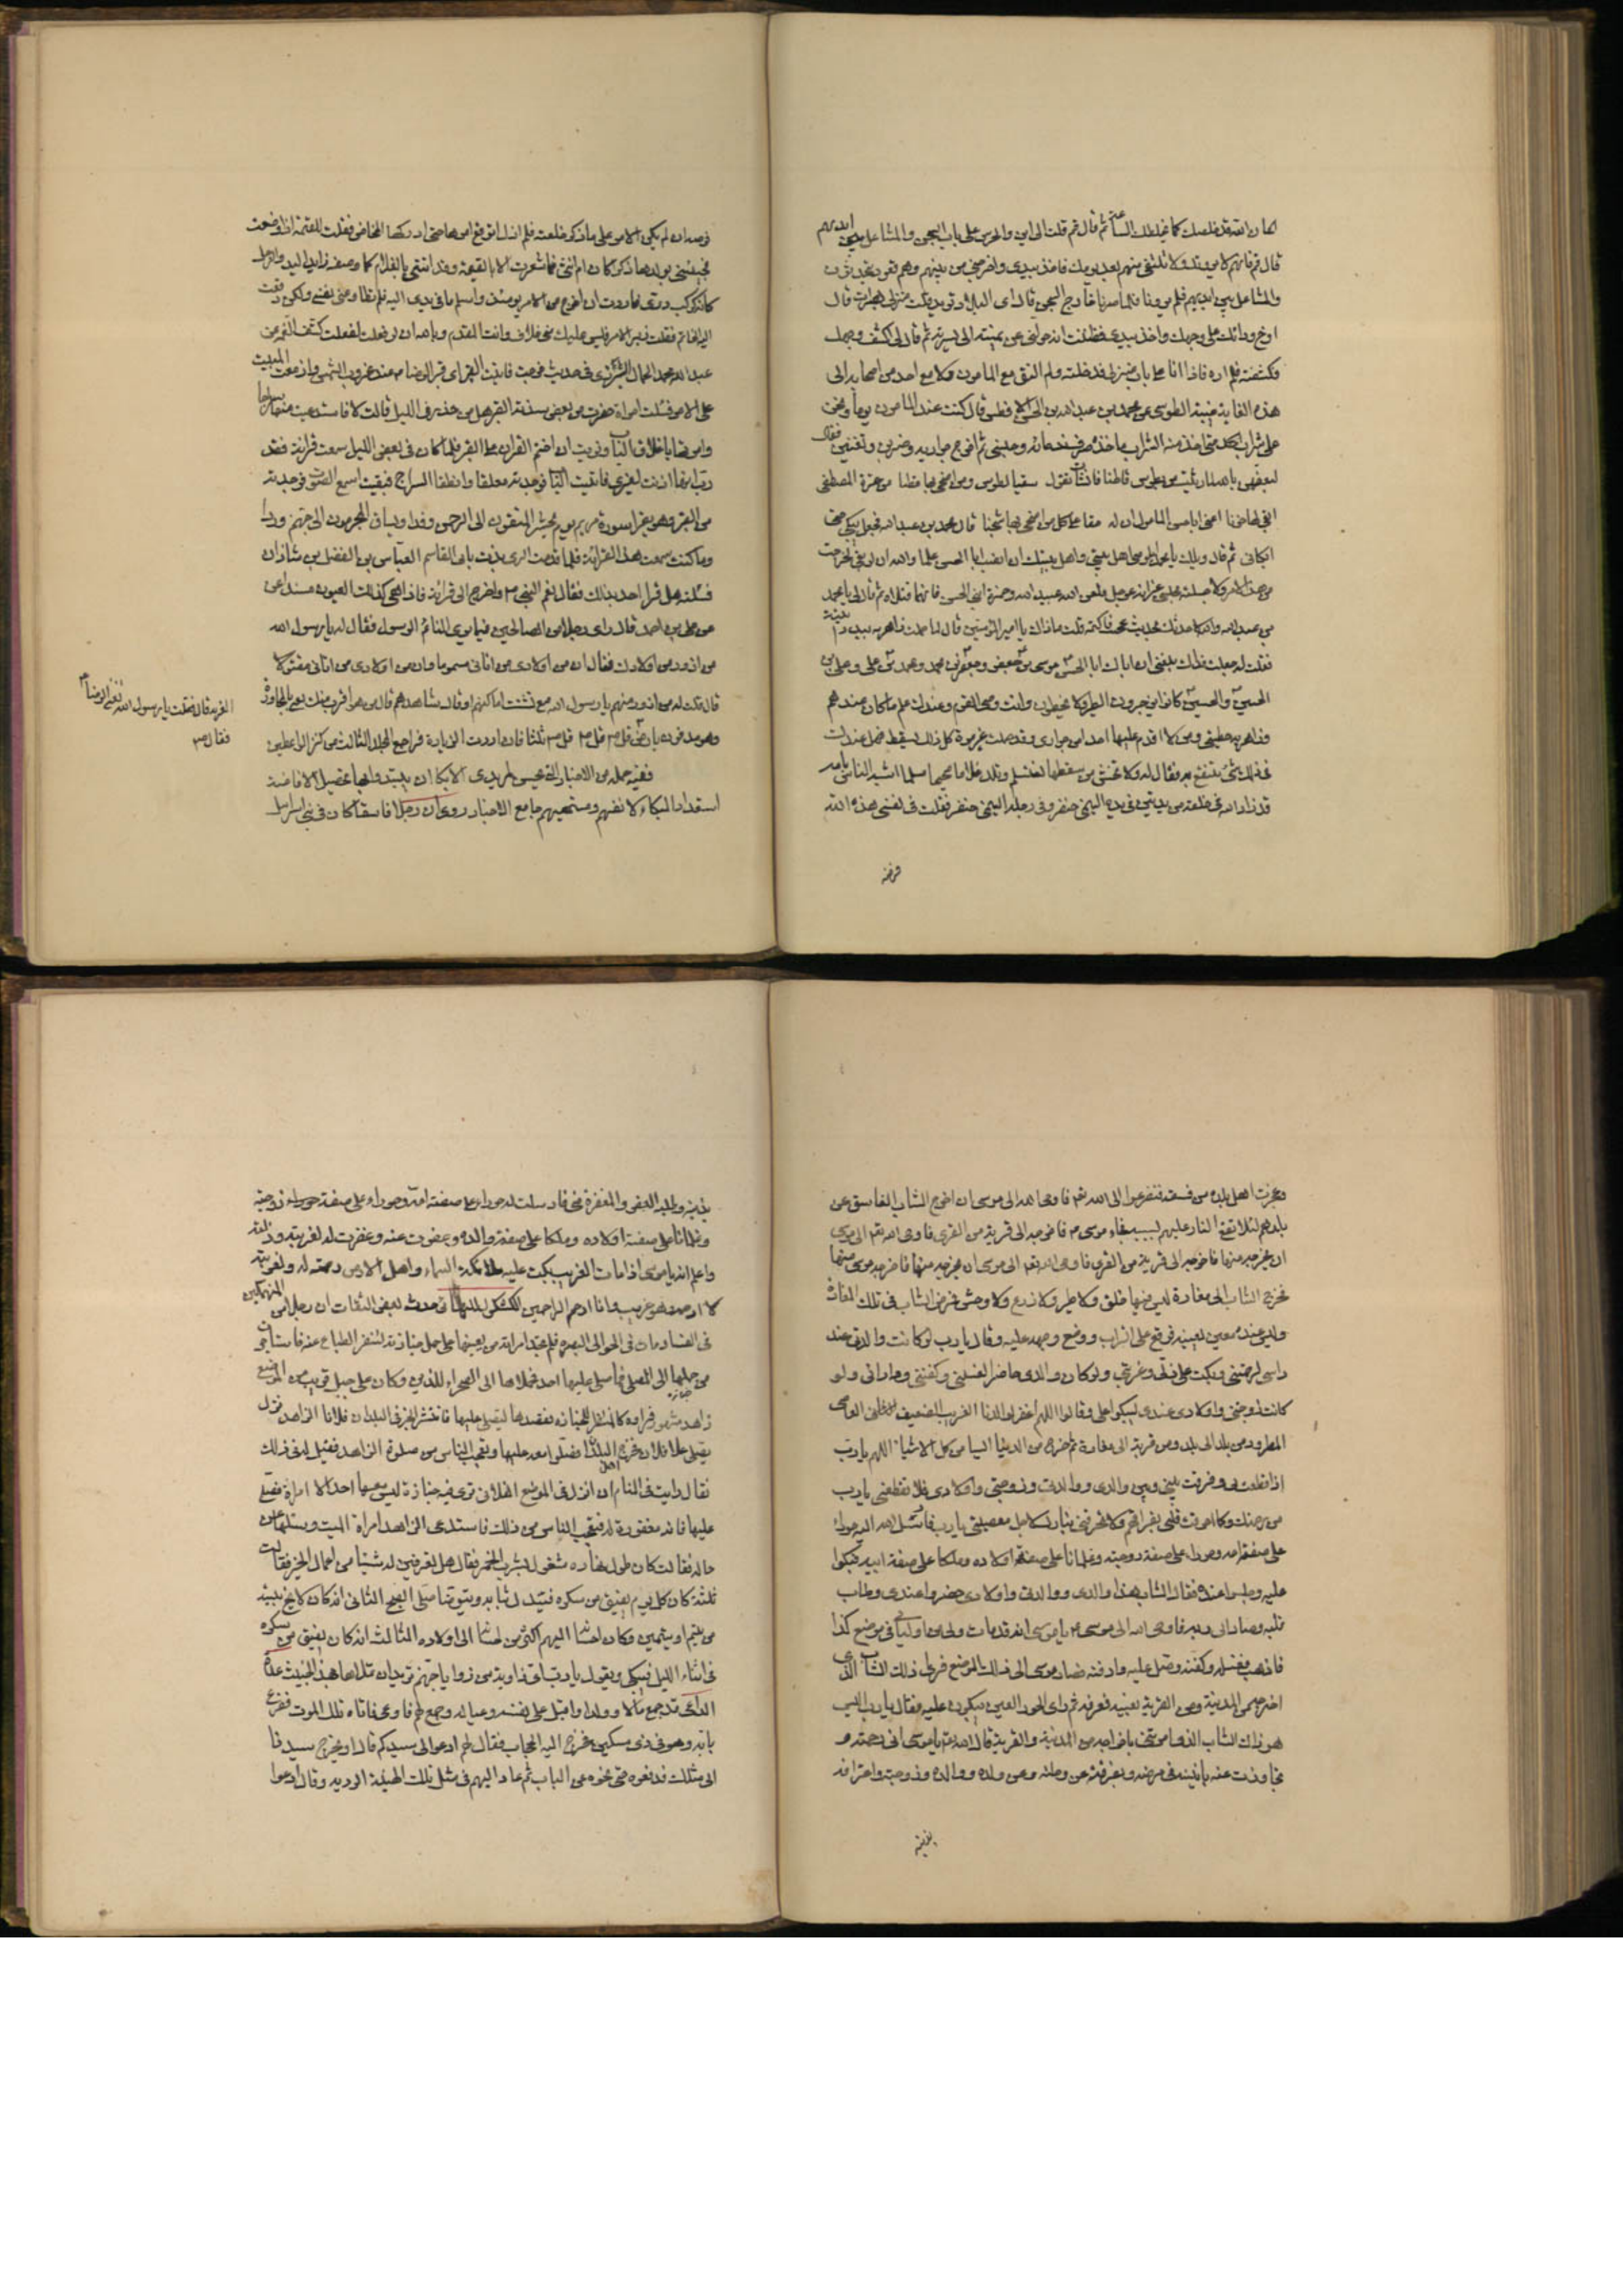 قال قم فانهم لا يرونك ولا تلتقي معهم بعد يومك فاخذ بيدي واخرجني من بينهم وهم قعود يتحدثون
والمشاعل بين ايديهم فلم يرونا فلما صرنا خارج السجن قال اى البلاد تريد قلت منزلى بهراة قال
ارخ ردائك على وجهك واخذ بيدى فظننت انه حولنى عن يمنته الى يسرته ثم قال لى اكشف وجهك
فكشفته فلم اره فاذا انا على باب منزلى فدخلته ولم التق مع المامون ولا مع احد من اصحابه الى
هذه الغاية غيبة الطوسى عن محمد بن عبد الله بن الحسن الافطس قال كنت عند المامون يوما ونحن
على شراب حتى اخذ منه الشراب ماخذه صرف ندمائه وحبسنى ثم اخرج جواريه وضربن وتغنين فقال
لبعضهن بالله لما رثيت من بطوس قاطنا فانشات تقول سقيا لطوس ومن اضحى بها قطنا من عترة المصطفى
ابقى لنا حزنا اعنى ابا حسن المامول ان له حقا على كل من اضحى بها شجنا قال محمد بن عبد الله فجعل يبكى حتى
ابكانى ثم قال ويلك يا محمد ايلومنى اهل بيتى واهل بيتك ان انصب ابا الحسن علما والله ان لو بقى لخرجت
من هذا الامر ولاجلسته مجلسى غير انه عوجل فلعن الله عبيد الله وحمزة ابنى الحسن فانهما قتلاه ثم قال لى يا محمد
بن عبد الله والله لاحدثنك بحديث عجيب فاكتمه قلت ما ذاك يا امير المؤمنين قال لما حملت زاهرية ببدر اتيته
فقلت له جعلت فداك بلغنى ان ابا الحسن موسى بن جعفر وجعفر بن محمد ومحمد بن على وعلى بن
الحسين والحسين كانوا يزجرون الطير ولا يخطئون وانت وصى القوم وعندك علم ما كان عندهم
وزاهرية حظيتى ومن لا اقدم عليها احدا من جوارى وقد حملت غير مرة كل ذلك يسقط فهل عندك
فى ذلك شئ ننتفع به فقال لا تخش من سقطها فستسلم وتلد غلاما صحيحا مسلما اشبه الناس بامه
قد زاده الله فى خلقته مزيدتين فى يده اليمنى خنصر وفى رجله اليمنى خنصر فقلت فى نفسى هذه والله
فرصة
فرصة ان لم يكن الامر على ما ذكر خلعته فلم ازل اتوقع امرها حتى ادركها المخاض فقلت للقيمة اذا وضعت
فجيئينى بولدها ذكرا كان ام انثى فما شعرت الا بالقيمة وقد اتتنى بالغلام كما وصفه زايد اليد والرجل
كانه كوكب درى فاردت ان اخرج من الامر يومئذ واسلم ما فى يدى اليه فلم تطاوعنى نفسى ولكن دفعت
اليه الخاتم فقلت دبر الامر فليس عليك منى خلاف وانت المقدم وبالله ان لو فعلت لفعلت
على الامر فسئلت امراة حضرت من بعض سدنة القبر هل من حذر فى الليل قالت لا فاستدعيت منها سراجا
وامرتها باغلاق الباب ونويت ان اختم القران على القبر فلما كان فى بعض الليل سمعت قرائة فقدرت
انها اذنت لغيرى فاتيت الباب فوجدته مغلقا وانطفا السراج فبقيت اسمع الصوت فوجدته
من القبر وهو يقرا سورة مريم يوم يحشر المتقون الى الرحمن وفدا ويساق المجرمون الى جهنم وردا
وما كنت سمعت هذه القرائة فلما قدمت الرى بدات بابى القاسم العباس بن الفضل بن شاذان
فسئلته هل قرا احد بذلك فقال نعم النبى ص واخرج الى قرائته فاذا هى كذلك العيون مسندا عن
على بن احمد قال راى رجل من الصالحين فيما يرى النائم الرسول فقال له يا رسول الله
من ازور من اولادك فقال ان من اولادى من اتانى مسموما وان من اولادى من اتانى مقتولا
قال قلت له من ازور منهم يا رسول الله مع تشتت اماكنهم او قال مشاهدهم قال من هو اقرب منك يعنى بالمجاورة
وهو مدفون بارض الغربة قال فقلت يا رسول الله تعنى الرضا
فقال ص
استعداد البكاء لانفسهم ومستحبهم جامع الاخبار روى ان رجلا فاسقا كان فى بنى اسرائيل
وعجزت اهل بلده من فسقه فتضرعوا الى الله تعالى فاوحى الله الى موسى ان اخرج الشاب الفاسق عن
بلدهم لئلا تقع النار عليهم بسببه فجاء موسى ع فاخرجه الى قرية من القرى فاوحى الله تعالى الى موسى
ان يخرجه منها فاخرجه الى قرية من القرى فاوحى الله تعالى الى موسى ان يخرجه منها فاخرجه موسى منها
فخرج الشاب الى مغارة ليس فيها خلق ولا طير ولا زرع ولا وحش فمرض الشاب فى تلك المغارة
وليس عنده معين يعينه فوقع على التراب ووضع وجهه عليه وقال يا رب لو كانت والدتى عند
راسى لرحمتنى وبكت على ذلى وغربتى ولو كان والدى حاضرا لغسلنى وكفننى ووارانى ولو
كانت زوجتى واولادى عندى لبكوا على وقالوا اللهم اغفر لوالدنا الغريب الضعيف العاصى
المطرود من بلد الى بلد ومن قرية الى مغارة ثم خرج من الدنيا آيسا من كل الاشياء اللهم يا رب
اذا قطعت بى وفرقت بينى وبين والدى ووالدتى وزوجتى واولادى فلا تقطعنى يا رب
من رحمتك وكما احرقت قلبى بفراقهم فلا تحرقنى بنارك لاجل معصيتى يا رب فارسل الله اليه حوراء
على صفة امه وحوراء على صفة زوجته وغلمانا على صفة اولاده وملكا على صفة ابيه فبكوا
عليه وجلسوا عنده فقال الشاب هذا والدى ووالدتى واولادى حضروا عندى وطاب
قلبه وصار الى ربه فاوحى الله الى موسى ع يا موسى انه قد مات ولى من اوليائى فى موضع كذا
فاذهب فغسله وكفنه وصل عليه وادفنه فصار موسى الى ذلك الموضع فراى ذلك الشاب الذى
اخرجه من المدينة ومن القرية بعينه فعرفه ثم راى الحور العين يبكون عليه فقال يا رب اليس
هو ذاك الشاب الذى امرتنى باخراجه من المدينة والقرية قال الله تعالى يا موسى انى رحمته و
تجاوزت عنه بانينه فى مرضه وبفرقته عن وطنه وعن ولده ووالده وزوجته واعترافه
بذنبه
بذنبه وطلبه العفو والمغفرة منى فارسلت له حوراء على صفة امه وحوراء على صفة زوجته
وغلمانا على صفة اولاده وملكا على صفة والده وعفوت عنه وغفرت له لغربته وذلته
واعلم انه يا موسى اذا مات الغريب بكت عليه ملائكة السماء واهل الارض رحمة له ولغربته
لا ارحمه وهو غريب وانا ارحم الراحمين الكشكول للبهائى حدث بعض الثقات ان رجلا من المنهمكين
فى الفساد مات فى نواحى البصرة فلم تجد امراته من يعينها على حمل جنازته لتنفر الطباع عنه فاستاجرت
من حملها الى المصلى فما صلى عليها احد فحملوها الى الصحراء للدفن وكان على جبل قريب من الموضع
زاهد مشهور فراوه كالمنتظر للجنازة فقصدها ليصلى عليها فانتشر الخبر فى البلد ان فلانا الزاهد نزل
يصلى على فلان فخرج اهل البلد فصلوا معه عليها وتعجب الناس من صلوة الزاهد فقيل له فى ذلك
فقال رايت فى المنام ان انزل فى الموضع الفلانى ترى فيه جنازة ليس معها احد الا امراة فصل
عليها فانه مغفور له فتعجب الناس من ذلك فاستدعى الزاهد امراة الميت وسئلها عن
حاله فقالت كان طول نهاره مشغولا بشرب الخمر فقال هل تعرفين له شيئا من اعمال الخير فقالت
ثلثة كان كل يوم يفيق من سكره فيبدل ثيابه ويتوضا ويصلى الصبح الثانى انه كان لا يخ بيته
من يتيم او يتيمين وكان احسانه اليهم اكثر من احسانه الى اولاده الثالث انه كان يفيق من سكره
فى اثناء الليل فيبكى ويقول يا رب اى زاوية من زوايا جهنم تريد ان تملاها بهذا الخبيث
قد جمع مالا وولدا واقبل على نفسه وعياله وجمع لهم فاوعى فاتاه ملك الموت فقرع
بابه وهو فى زى مسكين فخرج اليه الحجاب فقال لهم ادعوا لى سيدكم قالوا ويخرج سيدنا
الى مثلك فدفعوه حتى نحوه عن الباب ثم عاد اليهم فى مثل تلك الهيئة وقال ادعوا